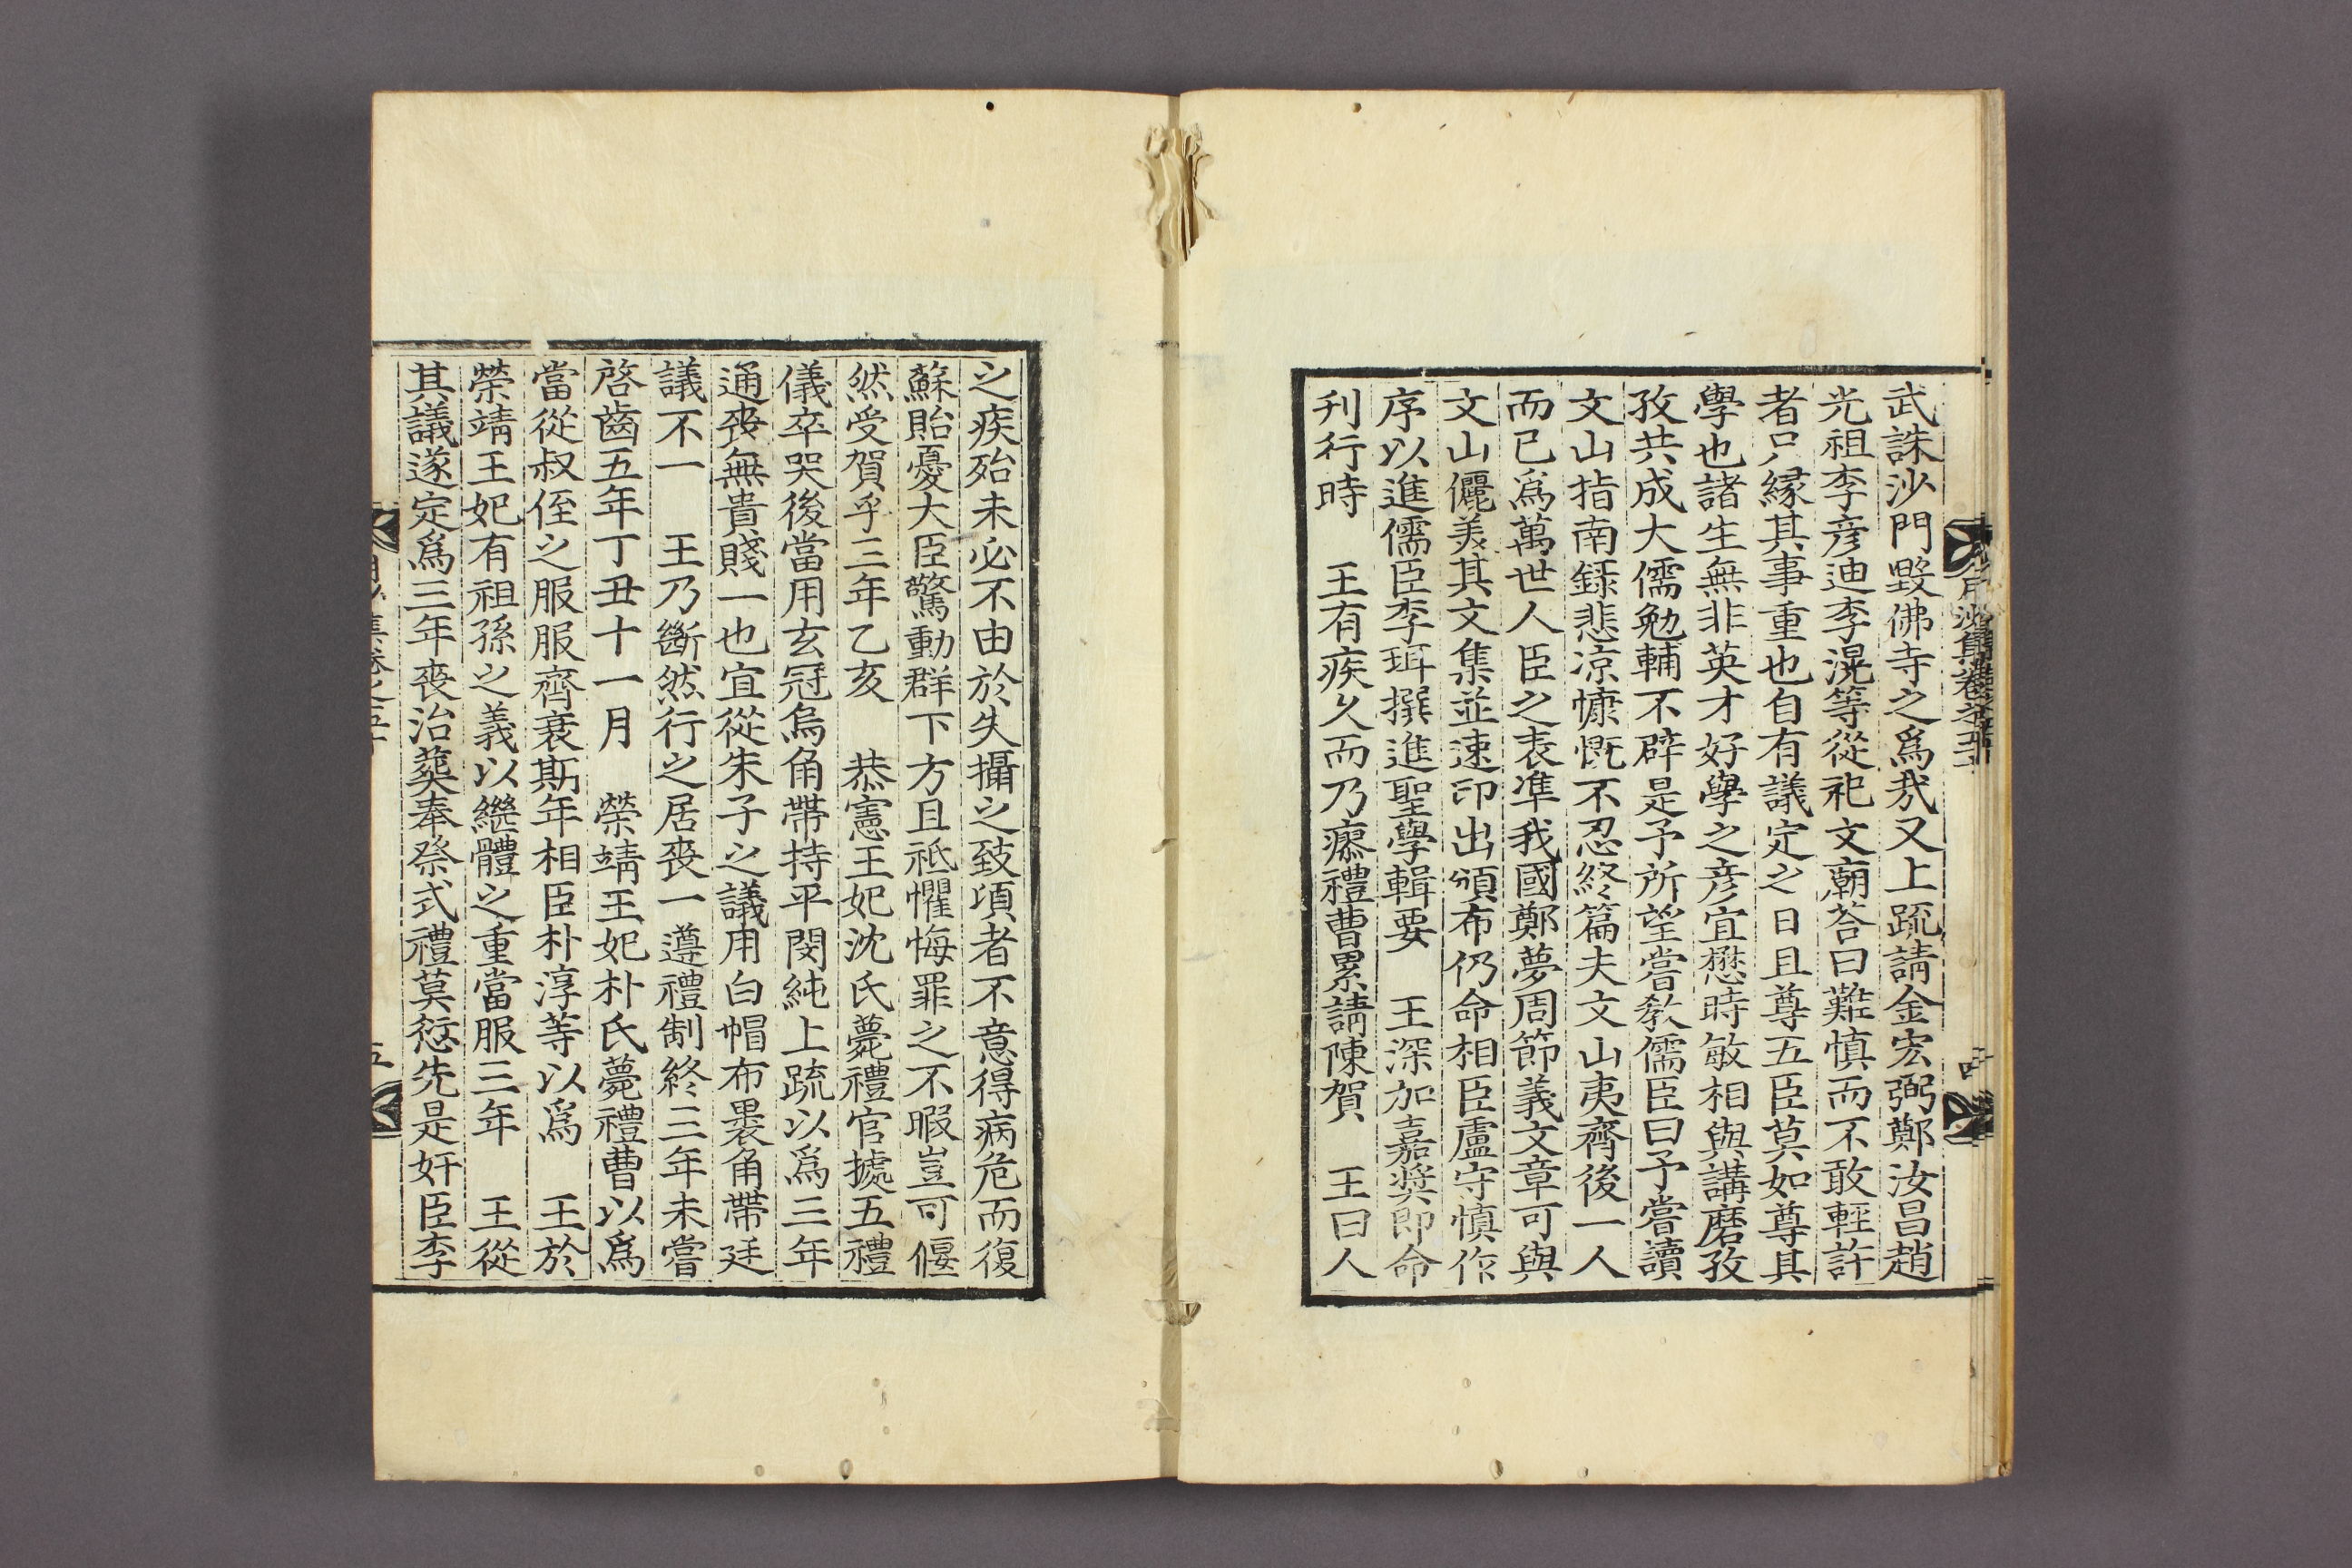 武誅沙門毀佛寺之爲㢤又上疏請金宏弼鄭汝昌趙
光祖李彦迪李滉等從祀文廟荅曰難愼而不敢輕許
者只縁其事重也自有議定之日且尊五臣莫如尊其
學也諸生無非英才好學之彦宜懋時敏相與講磨孜
孜共成大儒勉輔不辟是予所望嘗敎儒臣曰予嘗讀
文山指南録悲凉慷慨不忍終篇夫文山夷齊後一人
而已爲萬世人臣之表凖我國鄭夢周節義文章可與
文山儷美其文集並速印出頒布仍命相臣盧守愼作
序以進儒臣李珥撰進聖學輯要　王深加嘉奬卽命
刊行時　王有疾久而乃瘳禮曹累請陳賀　王曰人
之疾殆未必不由於失攝之致頃者不意得病危而復
蘇貽憂大臣驚動群下方且祗懼悔罪之不暇豈可偃
然受賀乎三年乙亥　恭憲王妃沈氏薨禮官據五禮
儀卒哭後當用玄冠烏角帶持平閔純上疏以爲三年
通喪無貴賤一也宜從朱子之議用白帽布裹角帶廷
議不一　王乃斷然行之居喪一遵禮制終三年未嘗
啓齒五年丁丑十一月　榮靖王妃朴氏薨禮曹以爲
當從叔侄之服服齊衰期年相臣朴淳等以爲　王於
榮靖王妃有祖孫之義以繼體之重當服三年　王從
其議遂定爲三年喪治葬奉祭式禮莫愆先是奸臣李